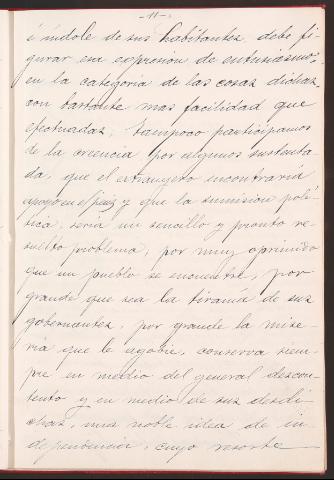 -11-
é índole de sus habitantes, debe fi-
gurar esa expresion de entusiasmo,
en la categoría de las cosas dichas
con bastante mas facilidad que
efectuadas; tampoco participamos
de la creencia por algunos sustenta-
da, que el estrangero encontraria
apoyo en el país y que la sumisión polí-
tica, sería un sencillo y pronto re-
suelto problema; por muy oprimido
que un pueblo se encuentre, por
grande que sea la tiranía de sus
gobernantes, por grande la mise-
ria que le agobie, conserva siem-
pre en medio del general descon-
tento y en medio de sus desdi-
chas, una noble idea de in-
dependencia, cuyo resorte